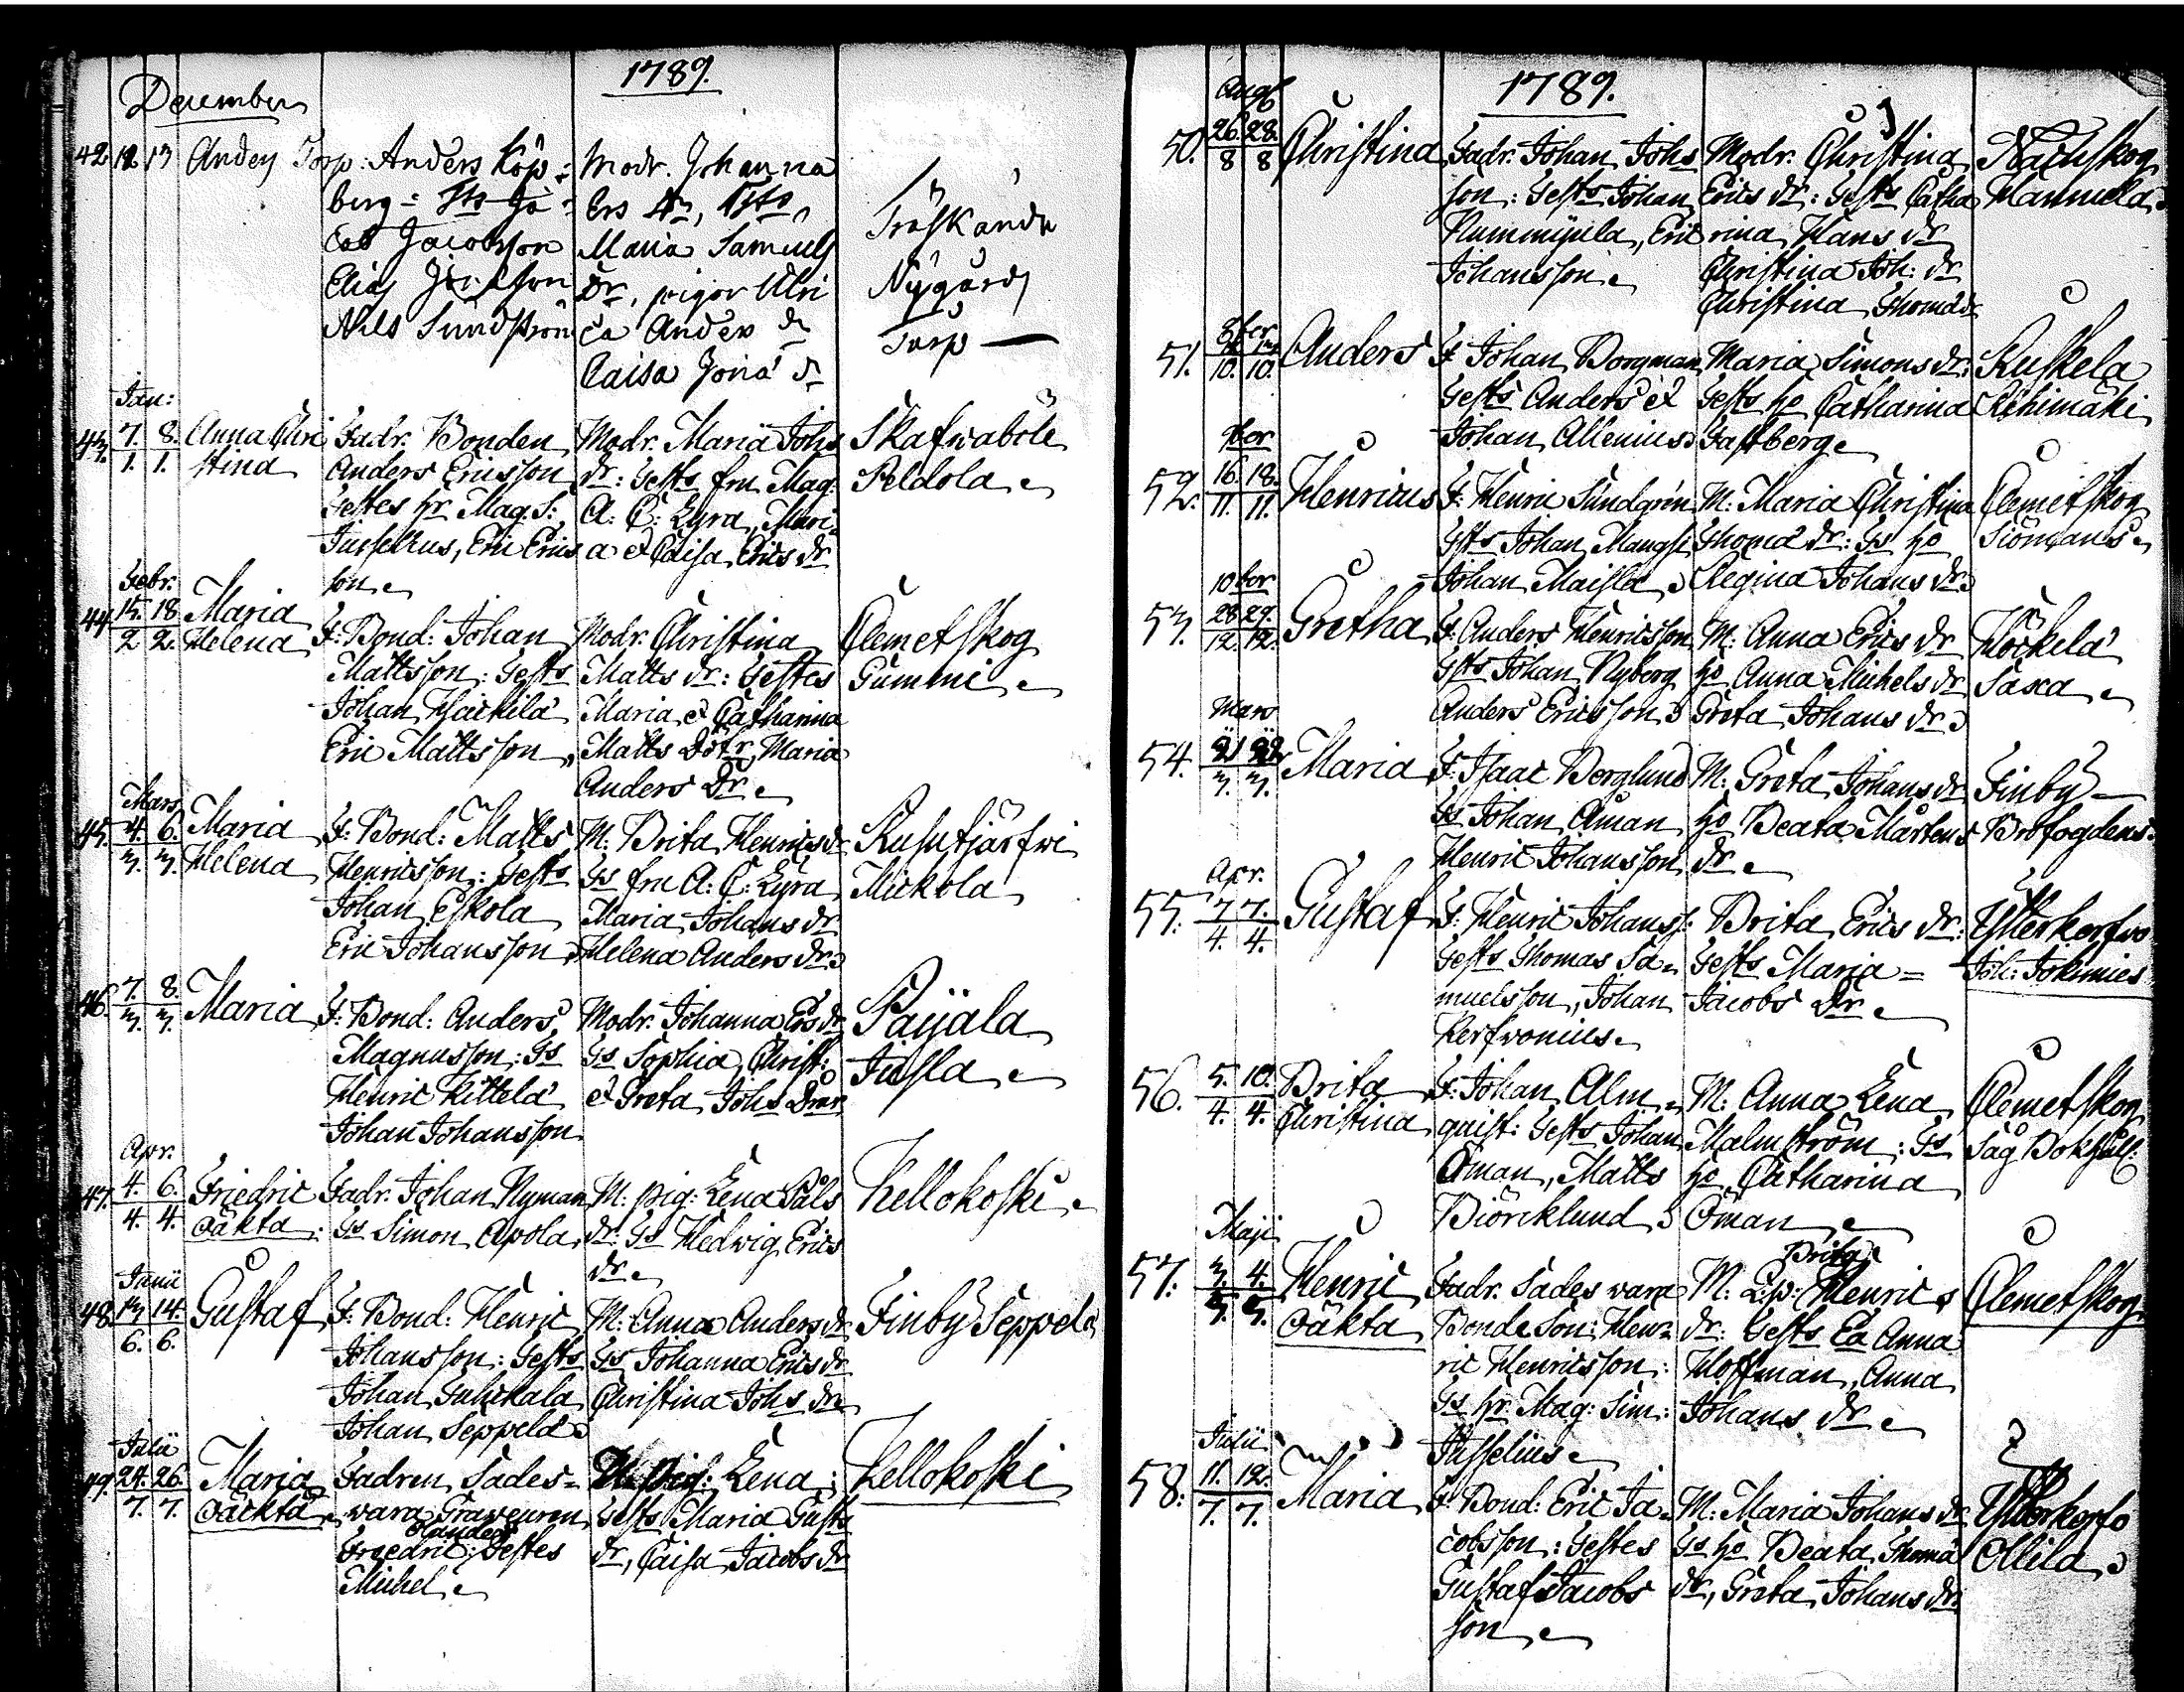 1789.
December
42. 12. 13 Anders Torp: Anders Köp=
berg: Tts Ja=
cob Jacobsson
Elias Jöransson
Nils Sundström
Modr. Johanna
Ers dr, Tsts
Maria Samuels
Dr, pigor Ulri
ca Anders dr
Caisa Jona dr
Träskända
Nygårds
Torp —
Jan:
43. 7. 8.
1. 1.
Anna Chri
stina
Fadr. Bonden
Anders Ericsson
Testes hr Mag. S:
Juselius, Eric Erics
son
Modr. Maria Johs
dr: Tests fru Mag:
A: C: Lyra, Mari
a et Caisa Erics dr
Skafwaböle
Peldola
Febr.
44. 15. 18.
2. 2.
Maria
Helena
F: Bond: Johan
Mattsson: Tests
Johan Heickilä
Eric Mattsson
Modr. Christina
Matts dr: Testes
Maria et Catharina
Matts Dötr, Maria
Anders Dr
Clemetskog
Gummi
Mars
45. 4. 6.
3. 3.
Maria
Helena
F: Bond: Matts
Henricsson: Tests
Johan Eskola
Eric Johansson
M: Brita Henricsdr
Ts fru A: C: Lyra
Maria Johans dr
Helena Anders dr
Rusutjärfwi
Mickola
46. 7. 8.
3. 3.
Maria
F: Bond: Anders
Magnusson: Ts
Henric Kittelä
Johan Johansson
Modr. Johanna Ers dr
Ts Sophia, Christ:
et Greta Johs Drar
Paijala
Jusla
Apr.
47. 4. 6.
4. 4.
Friedric
oäkta
Fadr. Johan Nyman
Ts Simon Apola
M: pig: Lena Påls
dr: Ts Hedwig Erics
dr
Kellokoski
Junii
48. 13 14.
6. 6.
Gustaf
F: Bond: Henric
Johansson: Tests
Johan Suhukala
Johan Seppelä
M: Anna Anders dr
Ts Johanna Erics dr
Christina Johs dr
Finby Seppelä
Julii
49. 24. 26.
7. 7.
Maria
oäckta
Fadren Sades=
wara Graveuren
Friedric: Testes
Michel
M: Pig: Lena:
Tests Maria Gusts
dr, Caisa Jacobs dr
Kellokoski
1789.
Aug
50. 26. 28.
8 8
Christina
Fadr. Johan Johs
son: Tests Johan
Nummijula, Eric
Johansson
Modr. Christina
Erics dr: Tests Catha
rina Hans dr
Christina Joh: dr
Christina Thomädr
Nackskog
Mannula
8ber
51.
10. 10.
Anders
F Johan Borgman
Tests Anders et
Johan Allenius
Maria Simons dr:
Tests ho Catharina
Fastberg
Ruskela
Rihimäki
9ber
52. 16. 18.
11. 11.
Henricus
F: Henric Sundgrén
Tsts Johan Mangsi
Johan Maisla
M: Maria Christina
Thomä dr: Ts ho
Regina Johans dr
Clemetskog
Siömans
10ber
53. 28. 29.
12. 12.
Gretha
F: Anders Henricsson
Tsts Johan Nyberg
Anders Ericsson
M: Anna Erics dr
ho Anna Michels dr
Greta Johans dr
Höckelä
Saxa
Mars
54. 21 22
3. 3.
Maria
F: Isaac Berglund
Ts Johan Åman
Henric Johansson
M: Greta Johans dr
ho Beata Mårtens
dr
Finby —
Brofogdens
Apr.
55. 7 7.
4. 4.
Gustaf
F: Henric Johanss:
Tests Thomas Sa=
muelsson, Johan
Kerfwonius
Brita Erics dr:
Tests Maria =
Jacobs Dr
Ytterkerfwo
Joh: Jokimies
56. 5. 10.
4. 4.
Brita
Christina
F: Johan Alm=
quist: Tests Johan
Öman, Matts
Biörcklund
M: Anna Lena
Malmström: Ts
ho Catharina
Öman
Clemetskog
Såg Bokhåll:
Maji
57. 3. 4.
5. 5.
Henric
oäkta
Fadr. Sades wara
Bonde Son: Hen=
ric Henricsson:
Ts hr Mag: Sim:
Jusselius
Brita
M: L:p: Henrics
dr: Tests Ea Anna
Hoffman, Anna
Johans dr
Clemetskog
Julii
58. 11. 12.
7. 7.
Maria
F: Bond: Eric Ja=
cobsson: Testes
Gustaf Jacobs
son
M: Maria Johans dr
Ts ho Beata Thomä
dr, Greta Johans dr
Ytterkerfo
Ollila